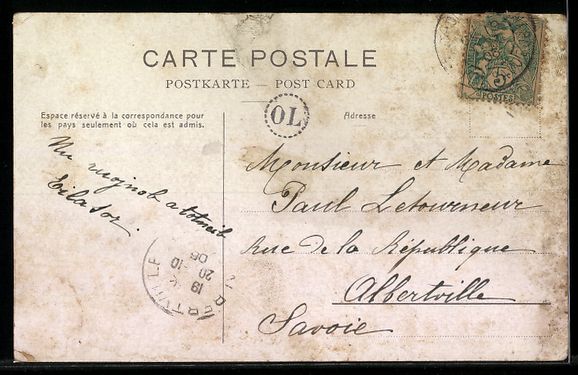 CARTE POSTALE
POSTKARTE — POST CARD
Espace réservé à la correspondance pour
les pays seulement où cela est admis.
OL
Adresse
5c
POSTES
Un mojnob a totneib
Eilasor.
Monsieur et Madame
Paul Letourneur
Rue de la République
Albertville
Savoie
ERTVILLE
20-10
05